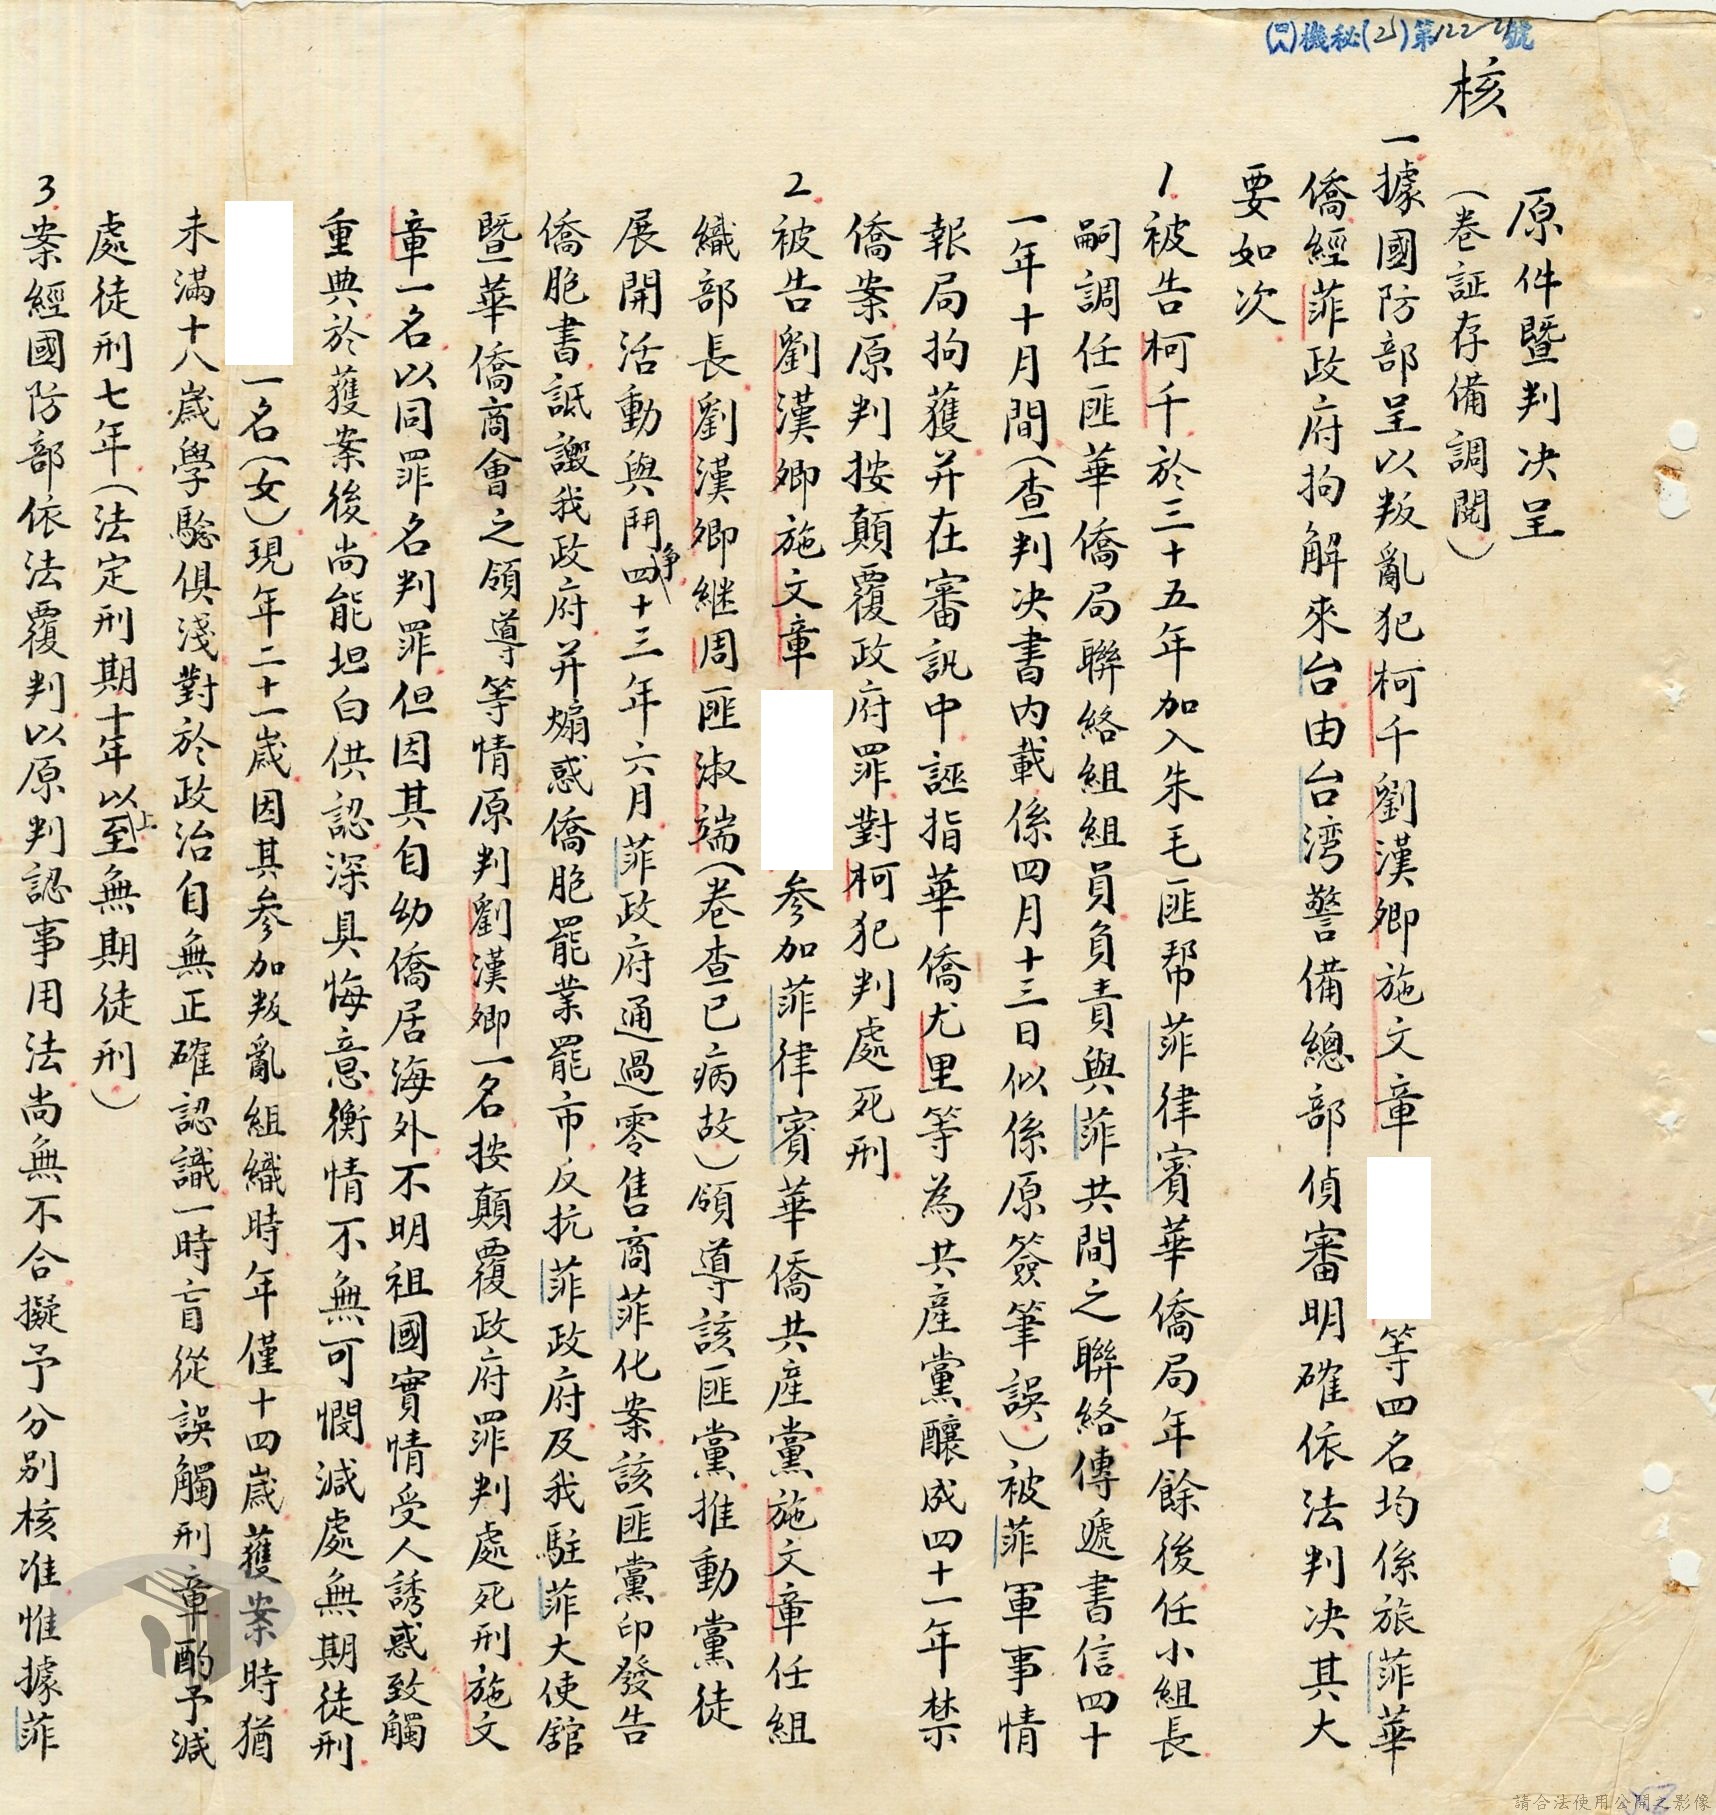 (四八)機秘(乙)第122-21號
核
原件暨判决呈
(卷証存備調閱)
一據國防部呈以叛亂犯柯千劉漢卿施文章 等四名均係旅菲華
僑經菲政府拘解來台由台湾警備總部偵審明確依法判决其大
要如次
1.被告柯千於三十五年加入朱毛匪幫菲律賓華僑局年餘後任小組長
嗣調任匪華僑局聯絡組組員負責與菲共間之聯絡傳遞書信四十
一年十月間(查判决書内載係四月十三日似係原簽筆誤)被菲軍事情
報局拘獲并在審訊中誣指華僑尤里等為共産黨釀成四十一年禁
僑案原判按顛覆政府罪對柯犯判處死刑
2.被告劉漢卿施文章 参加菲律賓華僑共産黨施文章任組
織部長劉漢卿継周匪淑端(卷查已病故)領導該匪黨推動黨徒
展開活動與鬥争四十三年六月菲政府通過零售商菲化案該匪黨印發告
僑胞書詆譭我政府并煽惑僑胞罷業罷市反抗菲政府及我駐菲大使舘
暨華僑商會之領導等情原判劉漢卿一名按顛覆政府罪判處死刑施文
章一名以同罪名判罪但因其自幼僑居海外不明祖國實情受人誘惑致觸
重典於獲案後尚能坦白供認深具悔意衡情不無可憫減處無期徒刑
一名(女)現年二十一歲因其参加叛亂組織時年僅十四歲獲案時猶
未滿十八歲學騐俱淺對於政治自無正確認識一時盲從誤觸刑章酌予減
處徒刑七年(法定刑期十年以上至無期徒刑)
3.案經國防部依法覆判以原判認事用法尚無不合擬予分别核准惟據菲
請合法使用公開之影像